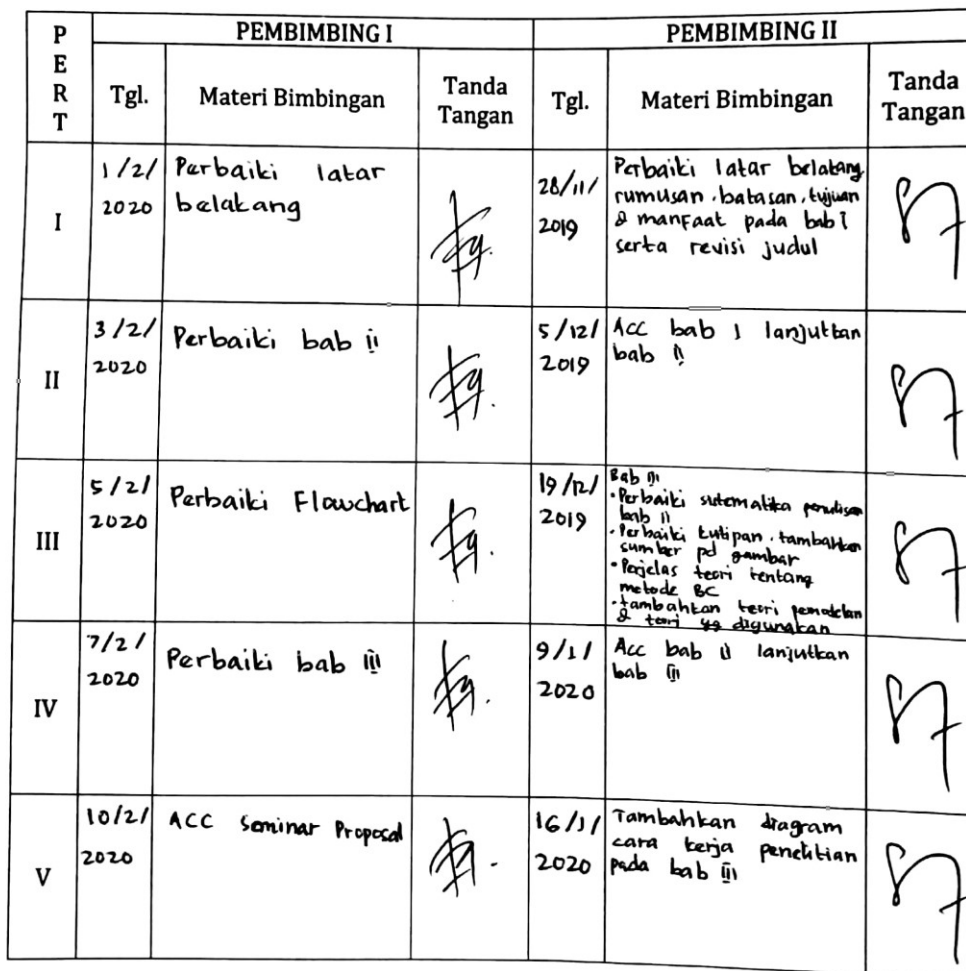 PERT
PEMBIMBING I
PEMBIMBING II
Tgl.
Materi Bimbingan
Tanda
Tangan
Tgl.
Materi Bimbingan
Tanda
Tangan
I
1/2/
2020
Perbaiki latar
belakang
28/11/
2019
Perbaiki latar belakang
rumusan, batasan, tujuan
& manfaat pada bab I
serta revisi judul
II
3/2/
2020
Perbaiki bab ii
5/12/
2019
Acc bab I lanjutkan
bab II
III
5/2/
2020
Perbaiki Flowchart
19/12/
2019
Bab
• Perbaiki sistematika penulisan
bab II
• Perbaiki kutipan, tambahkan
sumber pd gambar
• Perjelas teori tentang
metode BC
• tambahkan teori pemodelan
& teori yg digunakan
IV
7/2/
2020
Perbaiki bab iii
9/1/
2020
Acc bab ii lanjutkan
bab iii
V
10/2/
2020
ACC Seminar Proposal
16/1/
2020
Tambahkan diagram
cara kerja penelitian
pada bab iii